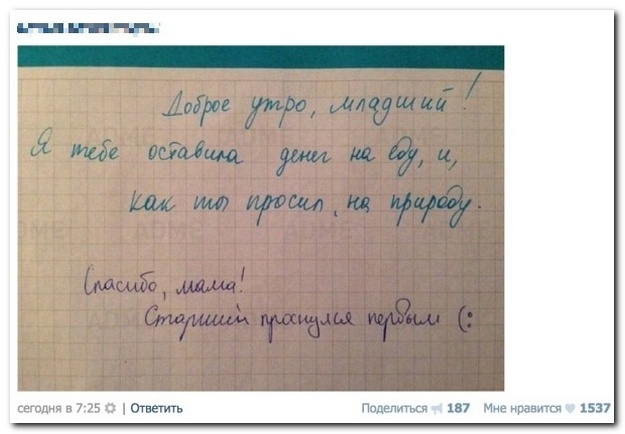 Доброе утро, младший!
Я тебе оставила денег на еду, и,
как ты просил, на природу.
Спасибо, мама!
Старший проснулся первым (:
сегодня в 7:25 | Ответить
Поделиться 187 Мне нравится 1537